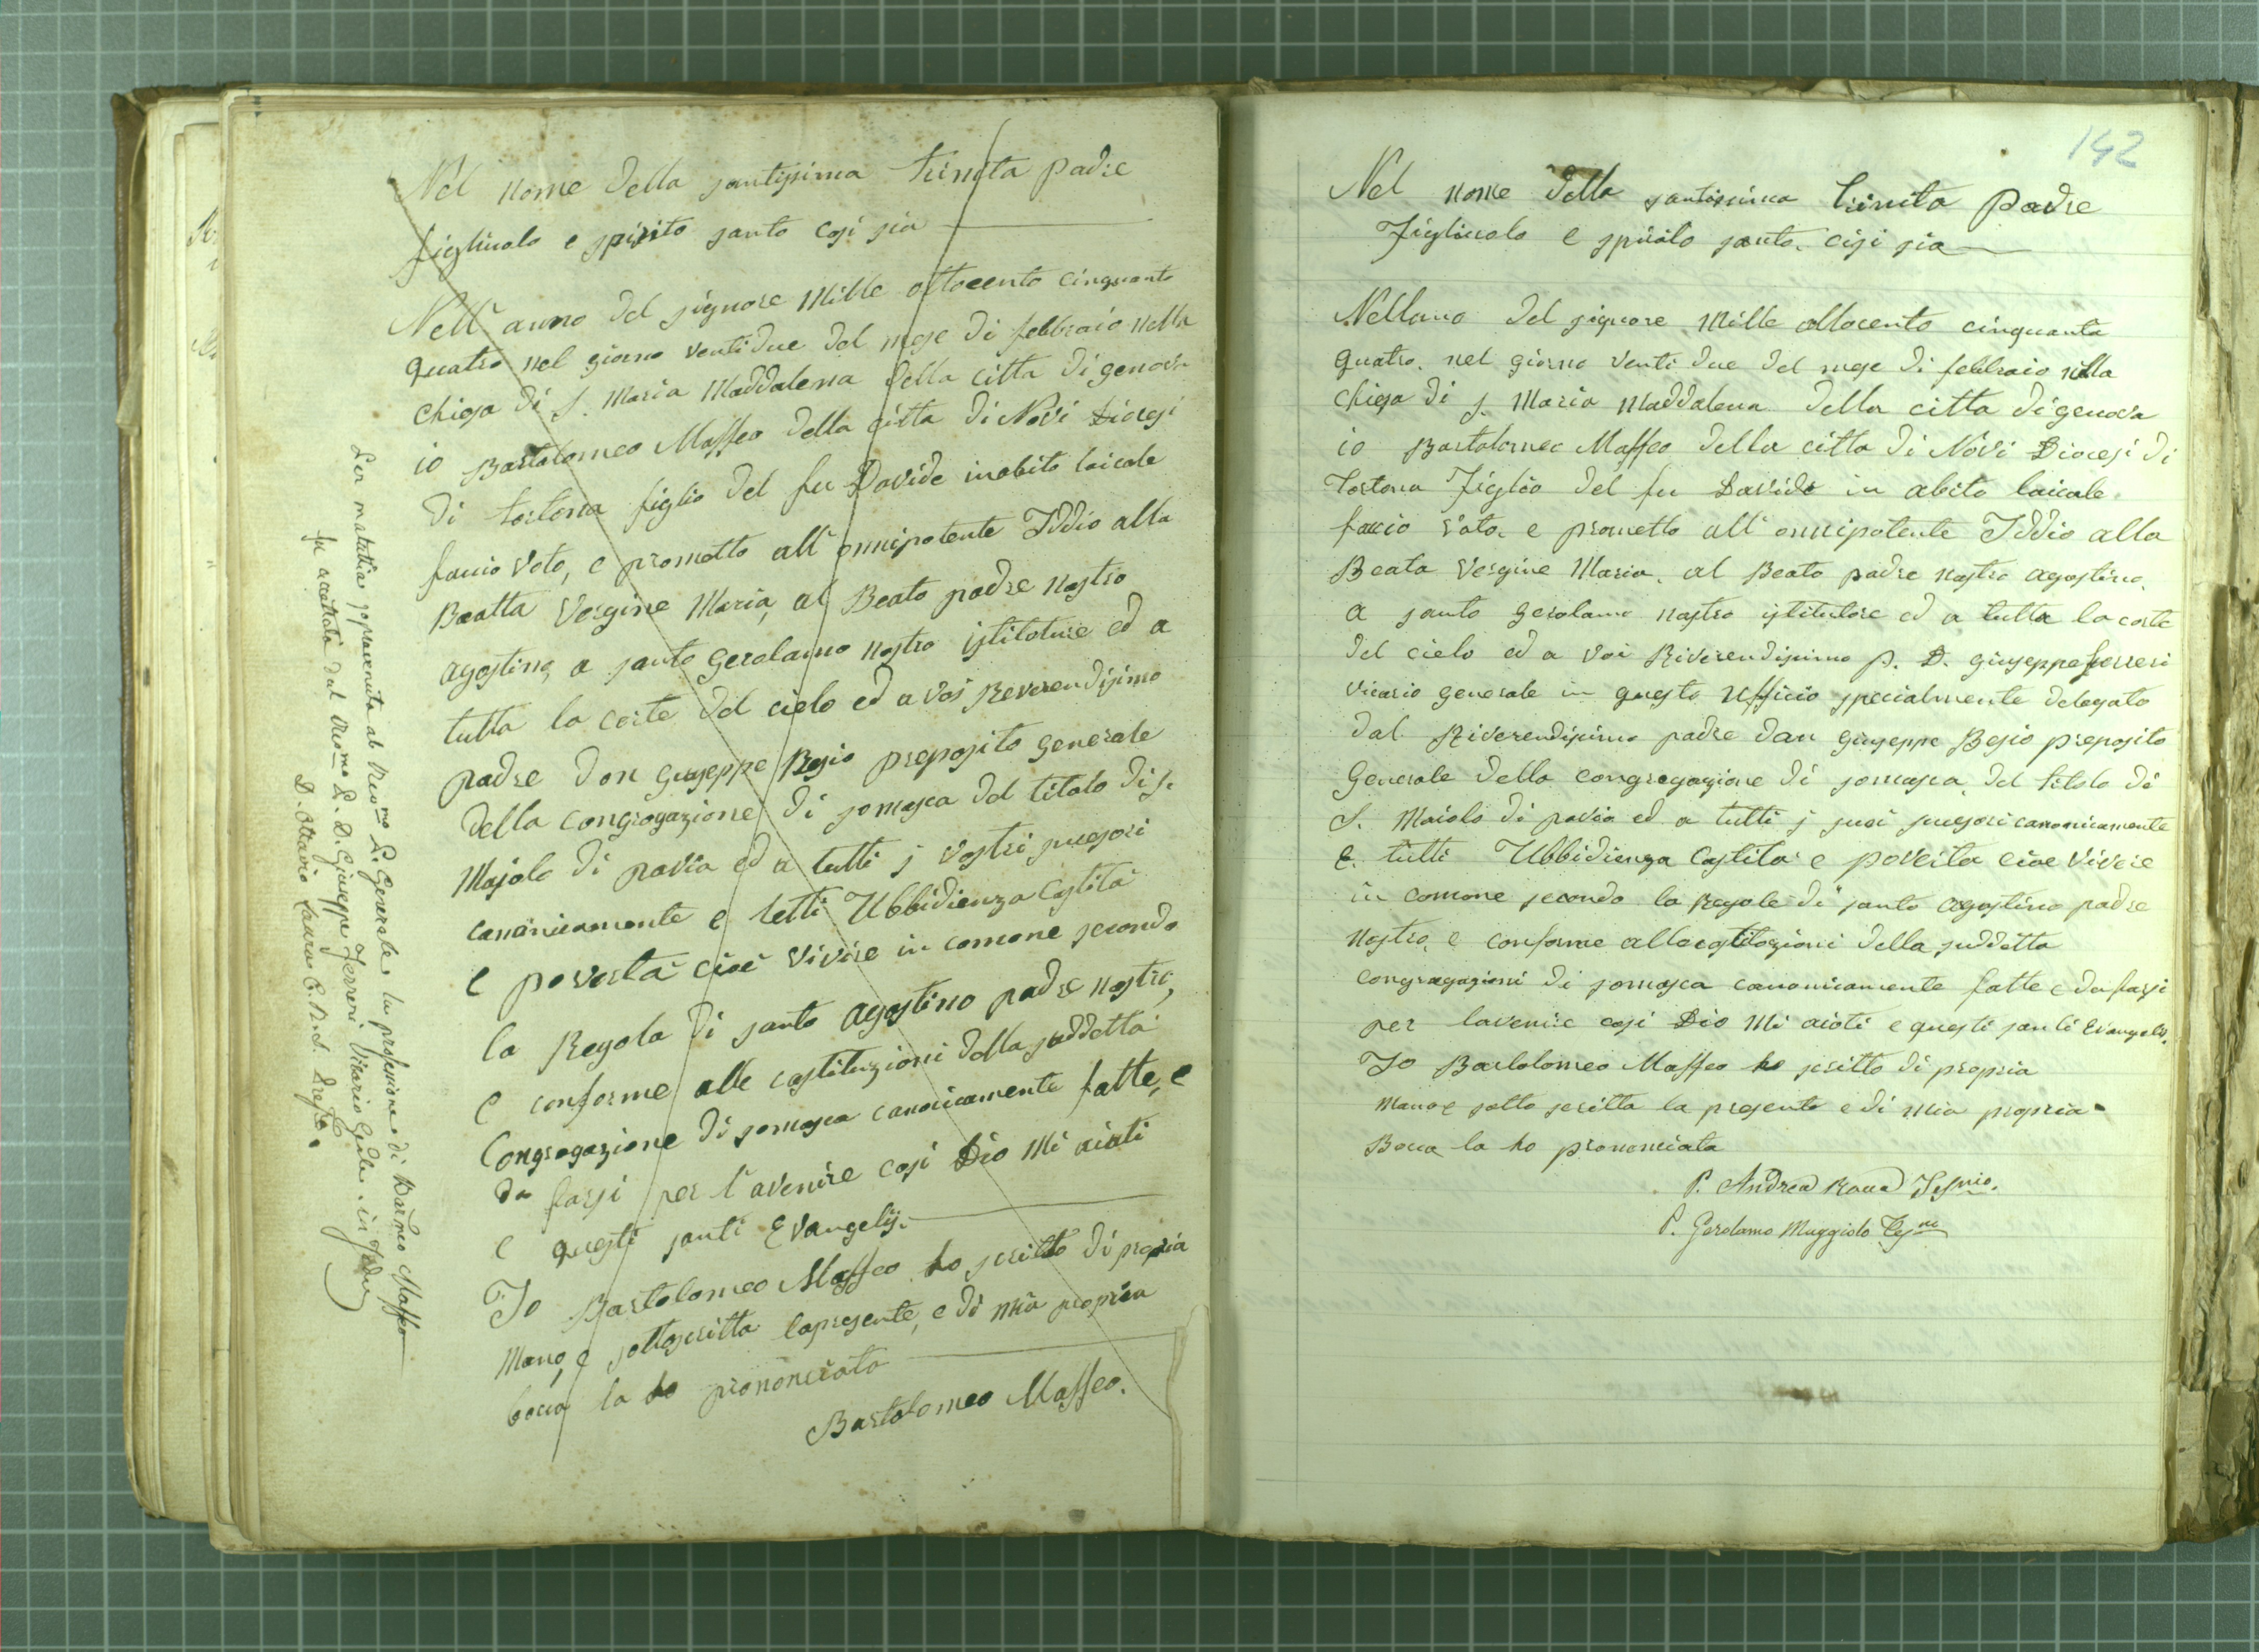 Nel nome della santissima trinita padre
figliuolo e spirito santo cosi sia
Nell' anno del signore mille ottocento cinquanta
quatro nel giorno ventidue del mese di febbraio nella
chiesa di S. Maria Maddalena della citta di genova
io Bartolomeo Maffeo della citta di Novi Diocesi
di tortona figlio del fu Davide inabito laicale
faccio voto, e prometto all' onnipotente Iddio alla
Beatta Vergine Maria, al Beato padre nostro
agostino, a santo gerolamo nostro istitutore ed a
tutta la corte del cielo ed a voi Reverendisimo
padre don Giuseppe Besio preposito generale
della congregazione di somasca del titolo di S.
Majolo di pavia ed a tutti j vostri sucesori
canonicamente e letti Ubbidienza Castità
e povertà cioè vivere in comone secondo
la Regola di santo agostino padre nostro,
e conforme alle costituzioni della suddetta
Congregazione di somasca canonicamente fatte, e
da farsi per l'avenire cosi Dio mi aiuti
e questi santi Evangelj.
Io Bartolomeo Maffeo ho scritto di propria
mano, e sottoscritta lapresente, e di mia propria
bocca la ho prononciata
Bartolomeo Maffeo.
Per malattia sopravenuta al Rev.mo P. Generale, la professione di Bar.meo Maffeo
fu accettata dal M.Rev.mo P. D. Giuseppe Ferreri Vicario Gñle. in fede
D. Ottavio Paura C.R.S.
142
Nel nome della santissima trinita Padre
Figliuolo e spirito santo. cisi sia
Nellano del signore mille ottocento cinquanta
quatro. nel giorno venti due del mese di febbraio nella
chiesa di S. Maria Maddalena della citta di genova
io Bartolomeo Maffeo della citta di Novi Diocesi di
Tortona Figlio del fu Davide in abito laicale
faccio voto. e prometto all' onnipotente Iddio alla
Beata Vergine Maria. al Beato padre nostro agostino.
a santo gerolamo nostro istitutore ed a tutta la corte
del cielo ed a voi Riverendisimo p. D. giuseppe ferreri
vicario generale in questo ufficio specialmente delegato
dal Riverendisimo padre dan giuseppe Besio preposito
Generale della congregazione di somasca. del titolo di
S. Maiolo di pavia ed a tutti j suoi sucesori canonicamente
E. tutti Ubbidienza Castita e poverta cioe vivere
in comone secondo la Regole di santo agostino padre
nostro, e conforme allecostitozioni della suddetta
congragazioni di somasca canonicamente fatte e da farsi
per lavenire cosi Dio Mi aioti e questi santi Evangeli.
Io Bartolomeo Maffeo ho scritto di propria
mano e sotto scritta la presente e di mia propria
Bocca la ho prononciata
P. Andrea Rocca Tes.nio.
P. Gerolamo Muggiolo Tes.no